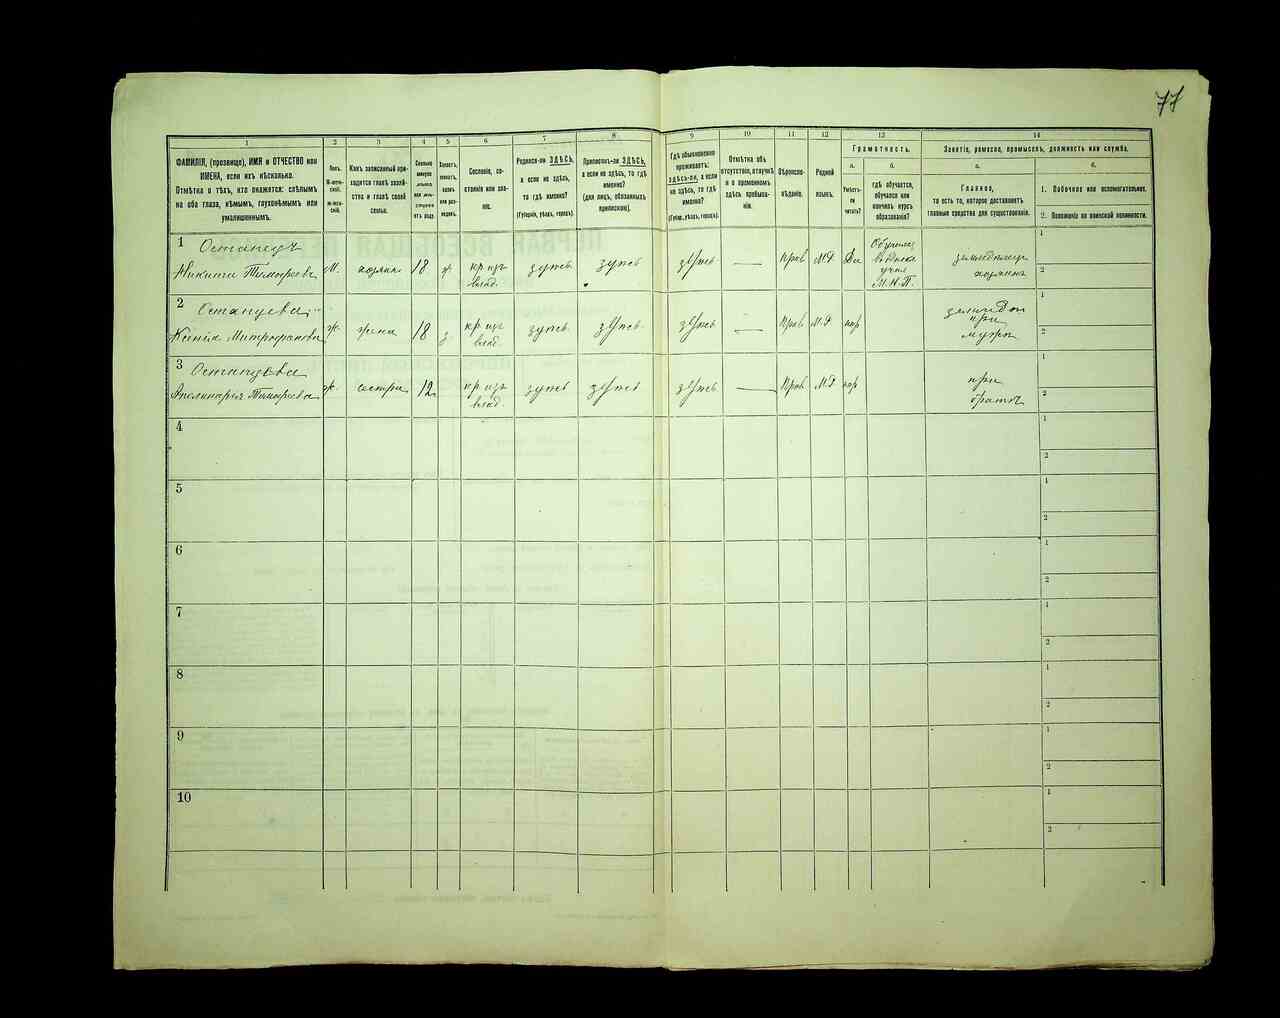 77
1 2 3 4 5 6 7 8 9 10 11 12 13 14
ФАМИЛІЯ, (прозвище), ИМЯ и ОТЧЕСТВО или
ИМЕНА, если ихъ нѣсколько.
Отмѣтка о тѣхъ, кто окажется: слѣпымъ
на оба глаза, нѣмымъ, глухонѣмымъ или
умалишеннымъ.
Полъ.
М-муж-
ской.
ж-жен-
скій.
Какъ записанный при-
ходится главѣ хозяй-
ства и главѣ своей
семьи.
Сколько
минуло
лѣтъ
или мѣ-
сяцевъ
отъ роду.
Холостъ,
женатъ,
вдовъ
или раз-
веденъ.
Сословіе, со-
стояніе или зва-
ніе.
Родился-ли ЗДѢСЬ,
а если не здѣсь,
то гдѣ именно?
(Губернія, уѣздъ, городъ).
Приписанъ-ли ЗДѢСЬ,
а если не здѣсь, то гдѣ
именно?
(для лицъ, обязанныхъ
припискою).
Гдѣ обыкновенно
проживаетъ:
здѣсь-ли, а если
не здѣсь, то гдѣ
именно?
(Губер., уѣздъ, городъ).
Отмѣтка объ
отсутствіи, отлучкѣ
и о временномъ
здѣсь пребыва-
ніи.
Вѣроиспо-
вѣданіе.
Родной
языкъ.
Грамотность.
а. б.
Умѣетъ-
ли
читать?
гдѣ обучается,
обучался или
кончилъ курсъ
образованія?
Занятіе, ремесло, промыселъ, должность или служба.
а. б.
Главное,
то есть то, которое доставляетъ
главныя средства для существованія.
1. Побочное или вспомогательное.
2. Положеніе по воинской повинности.
1 Остапецъ
Никита Тимофеевъ М. хозяинъ 18 ж кр изъ влад. здѣсь здѣсь здѣсь — Прав М.Р Да
Обучался
учил
М.Н.П.
земледѣлецъ
хозяинъ
1
2
2 Остапцева
Ксенія Митрофанова ж. жена 18 з. кр изъ влад. здѣсь здѣсь здѣсь — Прав М.Р
при
мужѣ
1
2
3 Остапцева
Тимофеева ж. сестра 12 кр изъ влад. здѣсь здѣсь здѣсь — Прав М.Р
при
братѣ
1
2
4
1
2
5
1
2
6
1
2
7
1
2
8
1
2
9
1
2
10
1
2